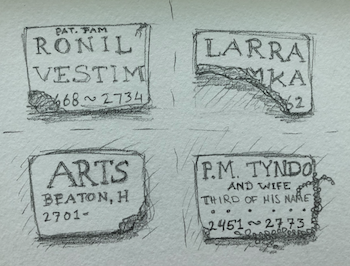 PAT. FAM
RONIL
VESTIM
68~2734
LARRA
MKA
2
ARTS
BEATON, H
2701-
P.M. TYNDO
AND WIFE
THIRD OF HIS NAME
2451~2773